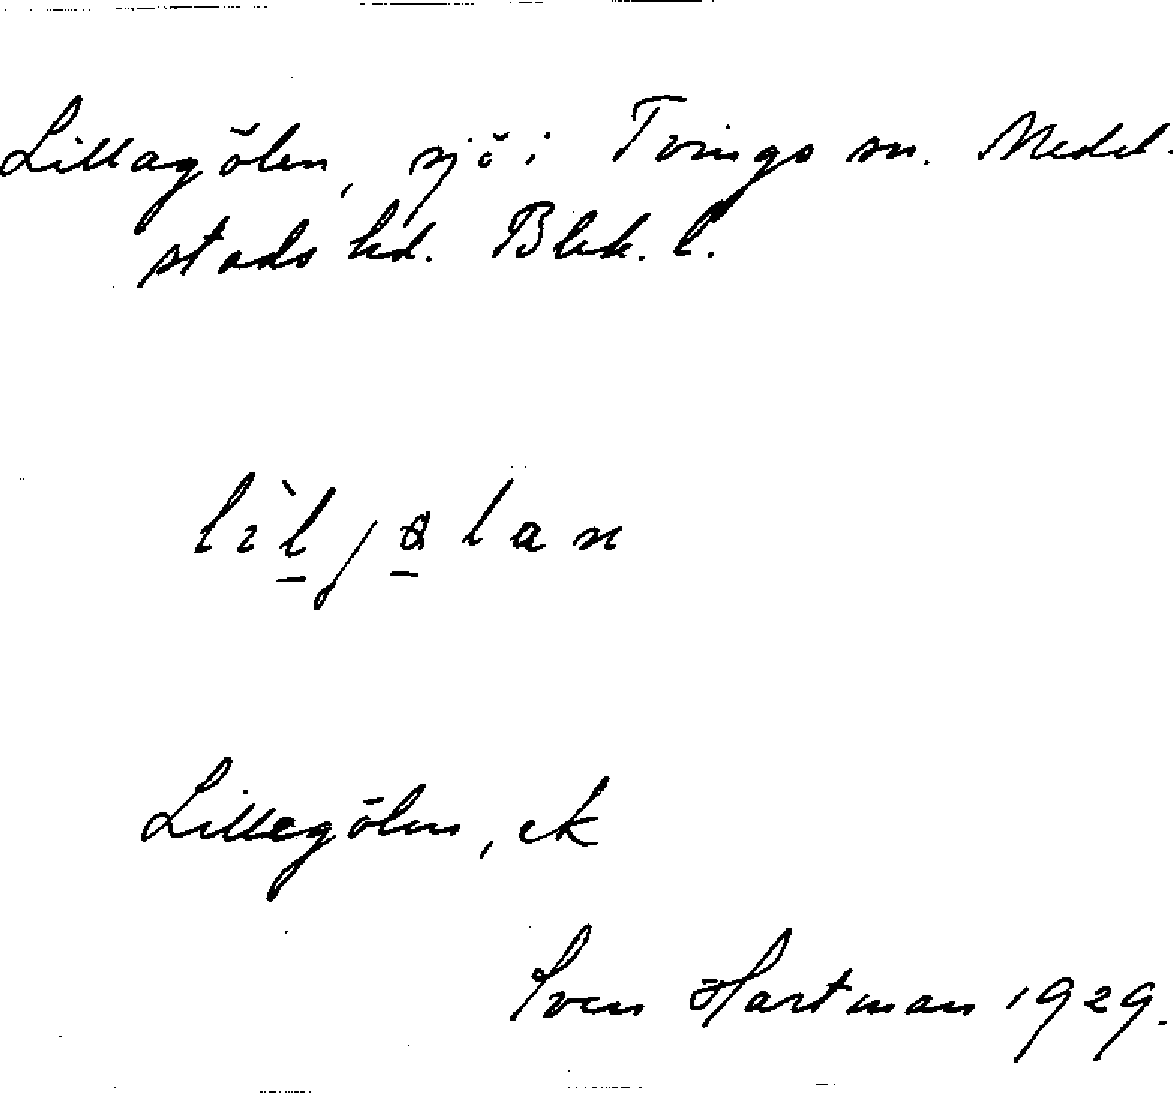 Lillagölen, sjö i Tvings sn. Medel-
stads hd. Blek. l.
lìljɵlan
Lillegölen, ek
Sven Hartman 1929.